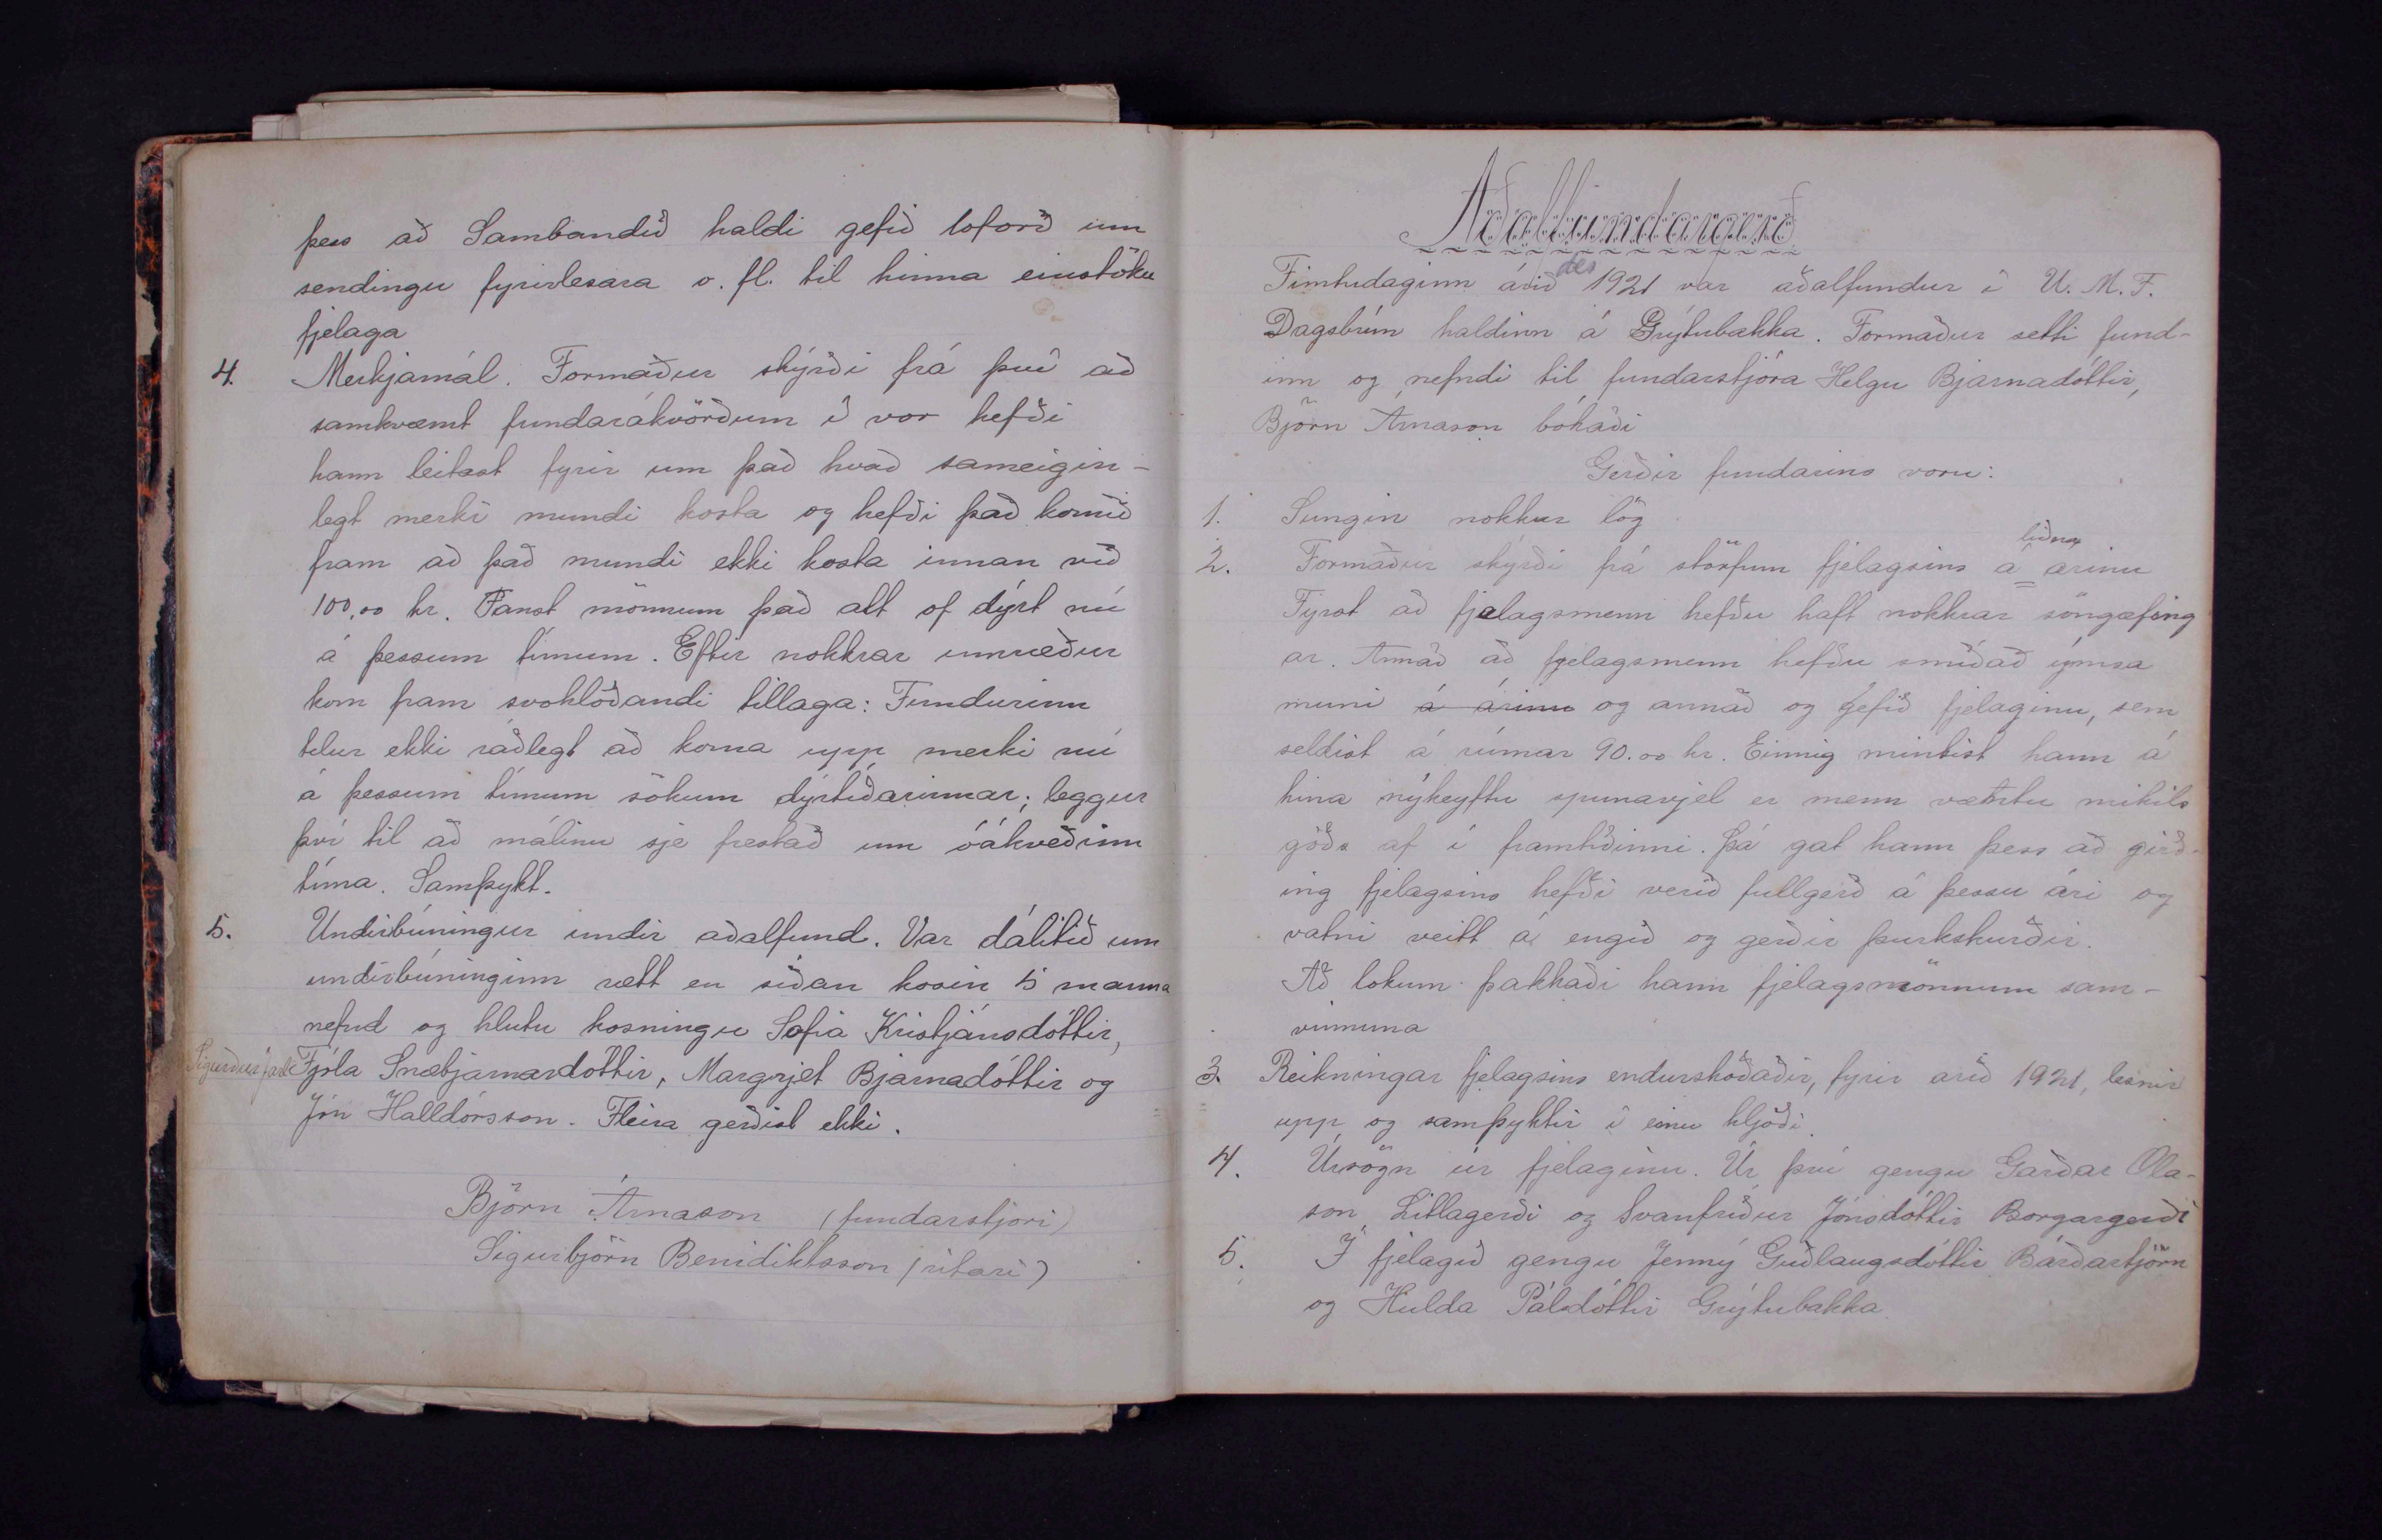 þess að Sambandið haldi gefið loforð um
sendingu fyrirlesara o. fl. til hinna einstöku
fjelaga
4. Merkjamál. Formaður skýrði frá því að
samkvæmt fundarákvörðum í vor hefði
hann leitast fyrir um það hvað sameigin-
legt merki mundi kosta og hefði það komið
fram að það mundi ekki kosta innan við
100,00 kr. Fanst mönnum það alt of dýrt nú
á þessum tímum. Eftir nokkrar umræður
kom fram svohlóðandi tillaga: Fundurinn
telur ekki ráðlegt að koma upp merki nú
á þessum tímum sökum dýrtíðarinnar; leggur
því til að málinu sje frestað um óákveðinn
tíma. Samþykt.
5. Undirbúningur undir aðalfund. Var dálitið um
undirbúninginn rætt en síðan kosin 5 manna
nefnd og hlutu kosningu Sofía Kristjánsdóttir,
Sigurður Fjóla Snæbjarnardóttir, Margrjet Bjarnadóttir og
Jón Halldórsson. Fleira gerðist ekki.
Björn Árnason (fundarstjori)
Sigurbjörn Benidiktsson (ritari)
Aðalfundargerð
des
Fimtudaginn árið 1921 var aðalfundur í U. M. F.
Dagsbrún haldinn á Grýtubakka. Formaður setti fund-
inn og nefndi til fundarstjóra Helgu Bjarnadóttir,
Björn Árnason bókaði
Gerðir fundarins voru:
1. Sungin nokkur lög
liðna
2. Formaður skýrði frá störfum fjelagsins á árinu
Fyrst að fjelagsmenn hefðu haft nokkrar söngæfing
ar. Annað að fjelagsmenn hefðu smíðað ýmsa
muni á árinu og annað og gefið fjelaginu, sem
seldist á rúmar 90.00 kr. Einnig mintist hann á
hina nýkeyftu spunavjel er menn væntu mikils
góðs af í framtíðinni. Þá gat hann þess að girð-
ing fjelagsins hefði verið fullgerð á þessu ári og
vatni veitt á engið og gerðir þurkskurðir.
Að lokum þakkaði hann fjelagsmönnum sam-
vinnuna
3. Reikningar fjelagsins endurskoðaðir, fyrir arið 1921, lesnir
upp og samþyktir í einu hljóði.
4. Úrsögn úr fjelaginu. Úr því gengu Garðar Óla-
son Litlagerði og Svanfríður Jónsdóttir Borgargerði
5. Í fjelagið gengu Jenný Guðlaugsdóttir Bárðartjörn
og Hulda Pálsdóttir Grýtubakka